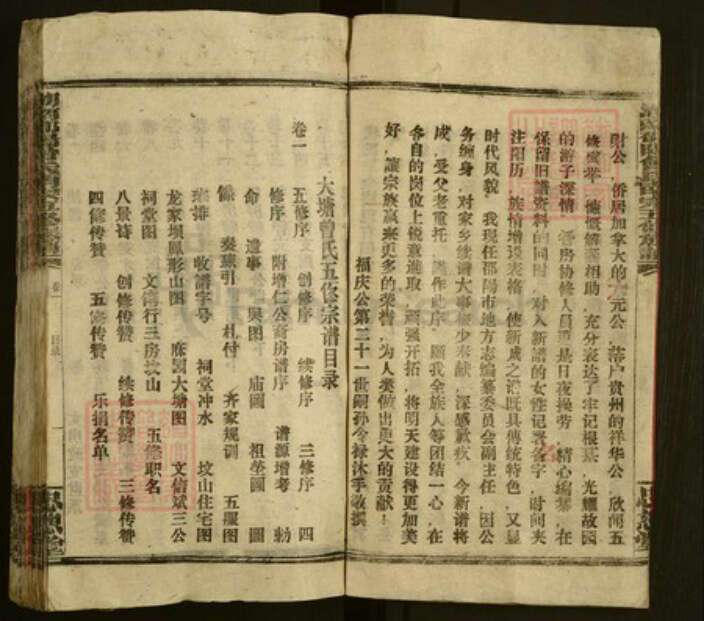 财公,侨居加拿大的大元公,落户贵州的祥华公,欣闻五
修家谱,慷慨解囊相助,充分表达了牢记根基,光耀故园
的游子深情 各房协修人员更是日夜操劳,精心编纂,在
保留旧谱资料的同时,对入新谱的女性记署名字,时间夹
注阳历,族情增设表格,使新成之谱既具傳统特色,又显
时代风貌,我现任邵阳市地方志编纂委员会副主任,因公
务缠身,对家乡续谱大事极少奉献,深感歉疚,今新谱将
成,受父老重托,谨作此序,愿我全族人等团结一心,在
各自的岗位上锐意進取,顽强开拓,将明天建设得更加美
好,讓宗族赢来更多的荣誉,为人类做出更大的贡献!
福庆公第三十一世嗣孙令禄沐手敬撰
大塘曾氏五修宗谱目录
卷一 五修序 创修序 续修序 三修序 四
修序 附增仁公裔房谱序 谱源增考 勅
命 遗事 舆图 庙圖 祖茔圖 圖
像 奏疏引 札付 齐家规训 五服图
班排 收谱字号 祠堂冲水 坟山住宅图
龙家坝鳳形山图 麻園大塘图 文信斌三公
祠堂图 文 行三房坟山 五修职名
八景诗 创修传赞 续修传赞 三修传赞
四修传赞 五修传赞 乐捐名单
卷一
目录